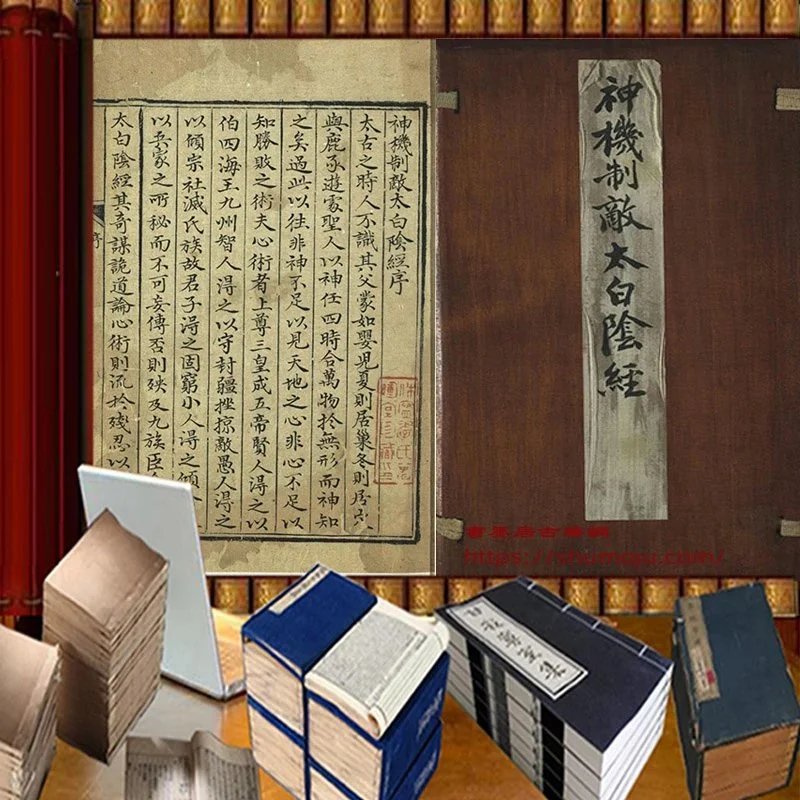 神機制敵太白陰經
神機制敵太白陰經序
太古之時人不識其父蒙如嬰兒夏則居巢冬則居穴
與鹿豕遊處聖人以神任四時合萬物於無形而神知
之矣過此以往非神不足以見天地之心非心不足以
知勝敗之術夫心術者上尊三皇成五帝賢人淂之以
伯四海王九州智人淂之以守封疆挫掠敵愚人淂之
以傾宗社滅氏族故君子淂之固窮小人淂之傾
以兵家之所秘而不可妄傳否則殃及九族臣
太白陰經其奇謀詭道論心術則流於殘忍以
序